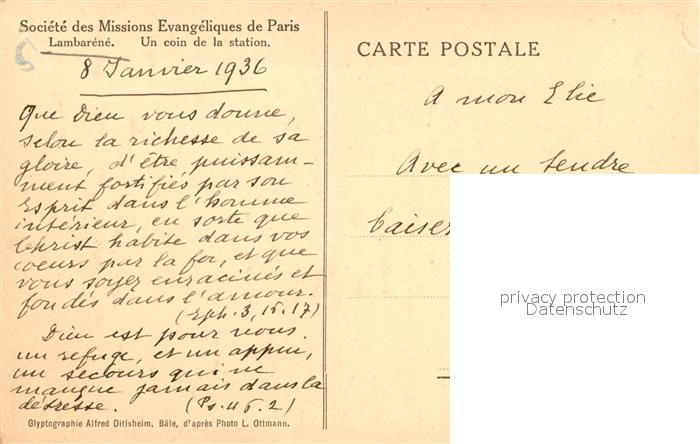 Société des Missions Evangéliques de Paris
Lambaréné. Un coin de la station.
8 Janvier 1936
Que Dieu vous donne,
selon la richesse de sa
gloire, d'être puissam-
ment fortifiés par son
Esprit dans l'homme
intérieur, en sorte que
Christ habite dans vos
coeurs par la foi, et que
vous soyez enracinés et
fondés dans l'amour.
(Eph. 3, 16.17)
Dieu est pour nous
un refuge, et un appui,
un secours qui ne
manque jamais dans la
détresse. (Ps. 46.2)
Glyptographie Alfred Ditisheim, Bâle, d'après Photo L. Ottmann.
CARTE POSTALE
A mon Elie
Avec un tendre
baiser
privacy protection
Datenschutz